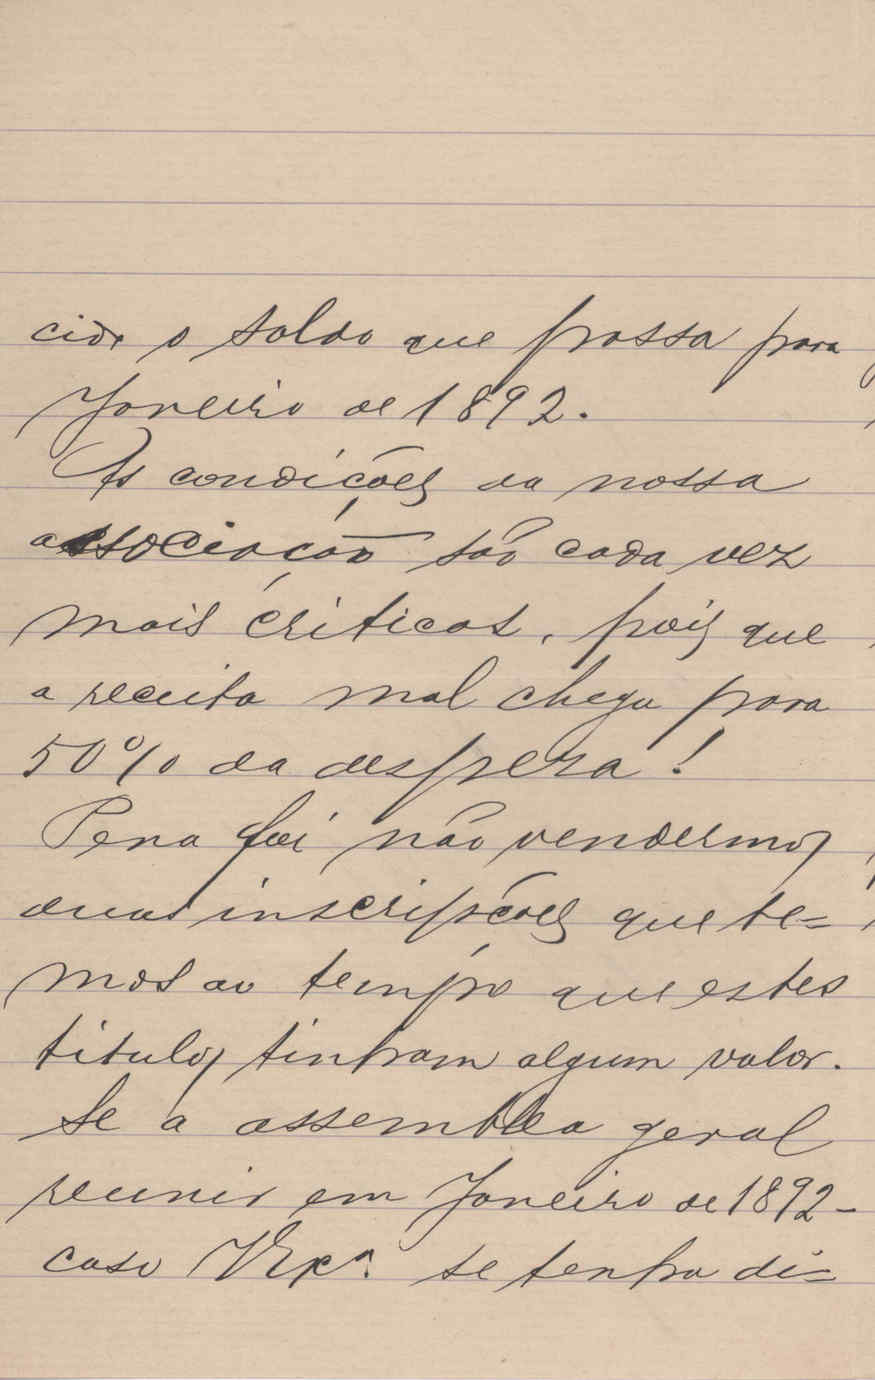 cido o saldo que passa para
Janeiro de 1892.
As condições da nossa
associação são cada vez
mais criticas, pois que
a receita mal chega para
50% da despeza!
Pena foi não vendermos
duas inscripções que te=
mos ao tempo que estes
titulos tinham algum valor.
Se a assemblea geral
reunir em Janeiro de 1892-
caso VExª. se tenha di=